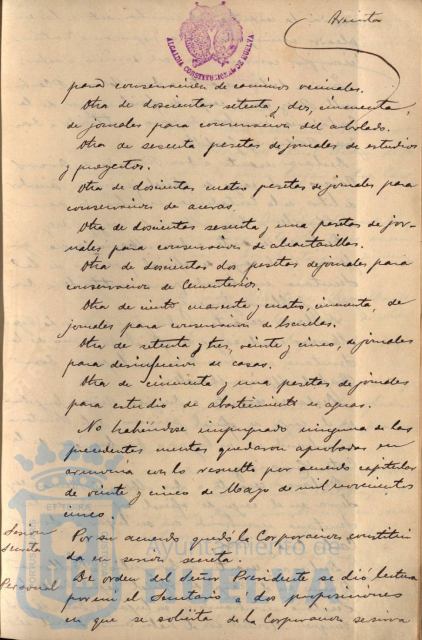 Treinta
ALCALDIA CONSTITUCIONAL DE HUELVA
para conservación de caminos vecinales.
Otra de doscientas setenta y dos, cincuenta,
de jornales para conservación del arbolado.
Otra de sesenta pesetas de jornales de estudios
y proyectos.
Otra de doscientas cuatro pesetas de jornales para
conservación de aceras.
Otra de doscientas sesenta y una pesetas de jor-
nales para conservación de alcantarillas.
Otra de doscientas dos pesetas de jornales para
conservación de Cementerios.
Otra de ciento cuarenta y cuatro, cincuenta, de
jornales para conservación de Escuelas.
Otra de setenta y tres, veinte y cinco, de jornales
para desinfección de casas.
Otra de cincuenta y una pesetas de jornales
para estudio de abastecimiento de aguas.
No habiéndose impugnado ninguna de las
precedentes cuentas quedaron aprobadas en
armonía con lo resuelto por acuerdo capitular
de veinte y cinco de Mayo de mil novecientos
cinco.
Sesión
secreta
Por su acuerdo quedó la Corporación constitui
da en sesión secreta.
Personal
De orden del Señor Presidente se dió lectura
por mí el Secretario á dos proposiciones
en que se solicita de la Corporación se sirva
Ayuntamiento de
HUELVA